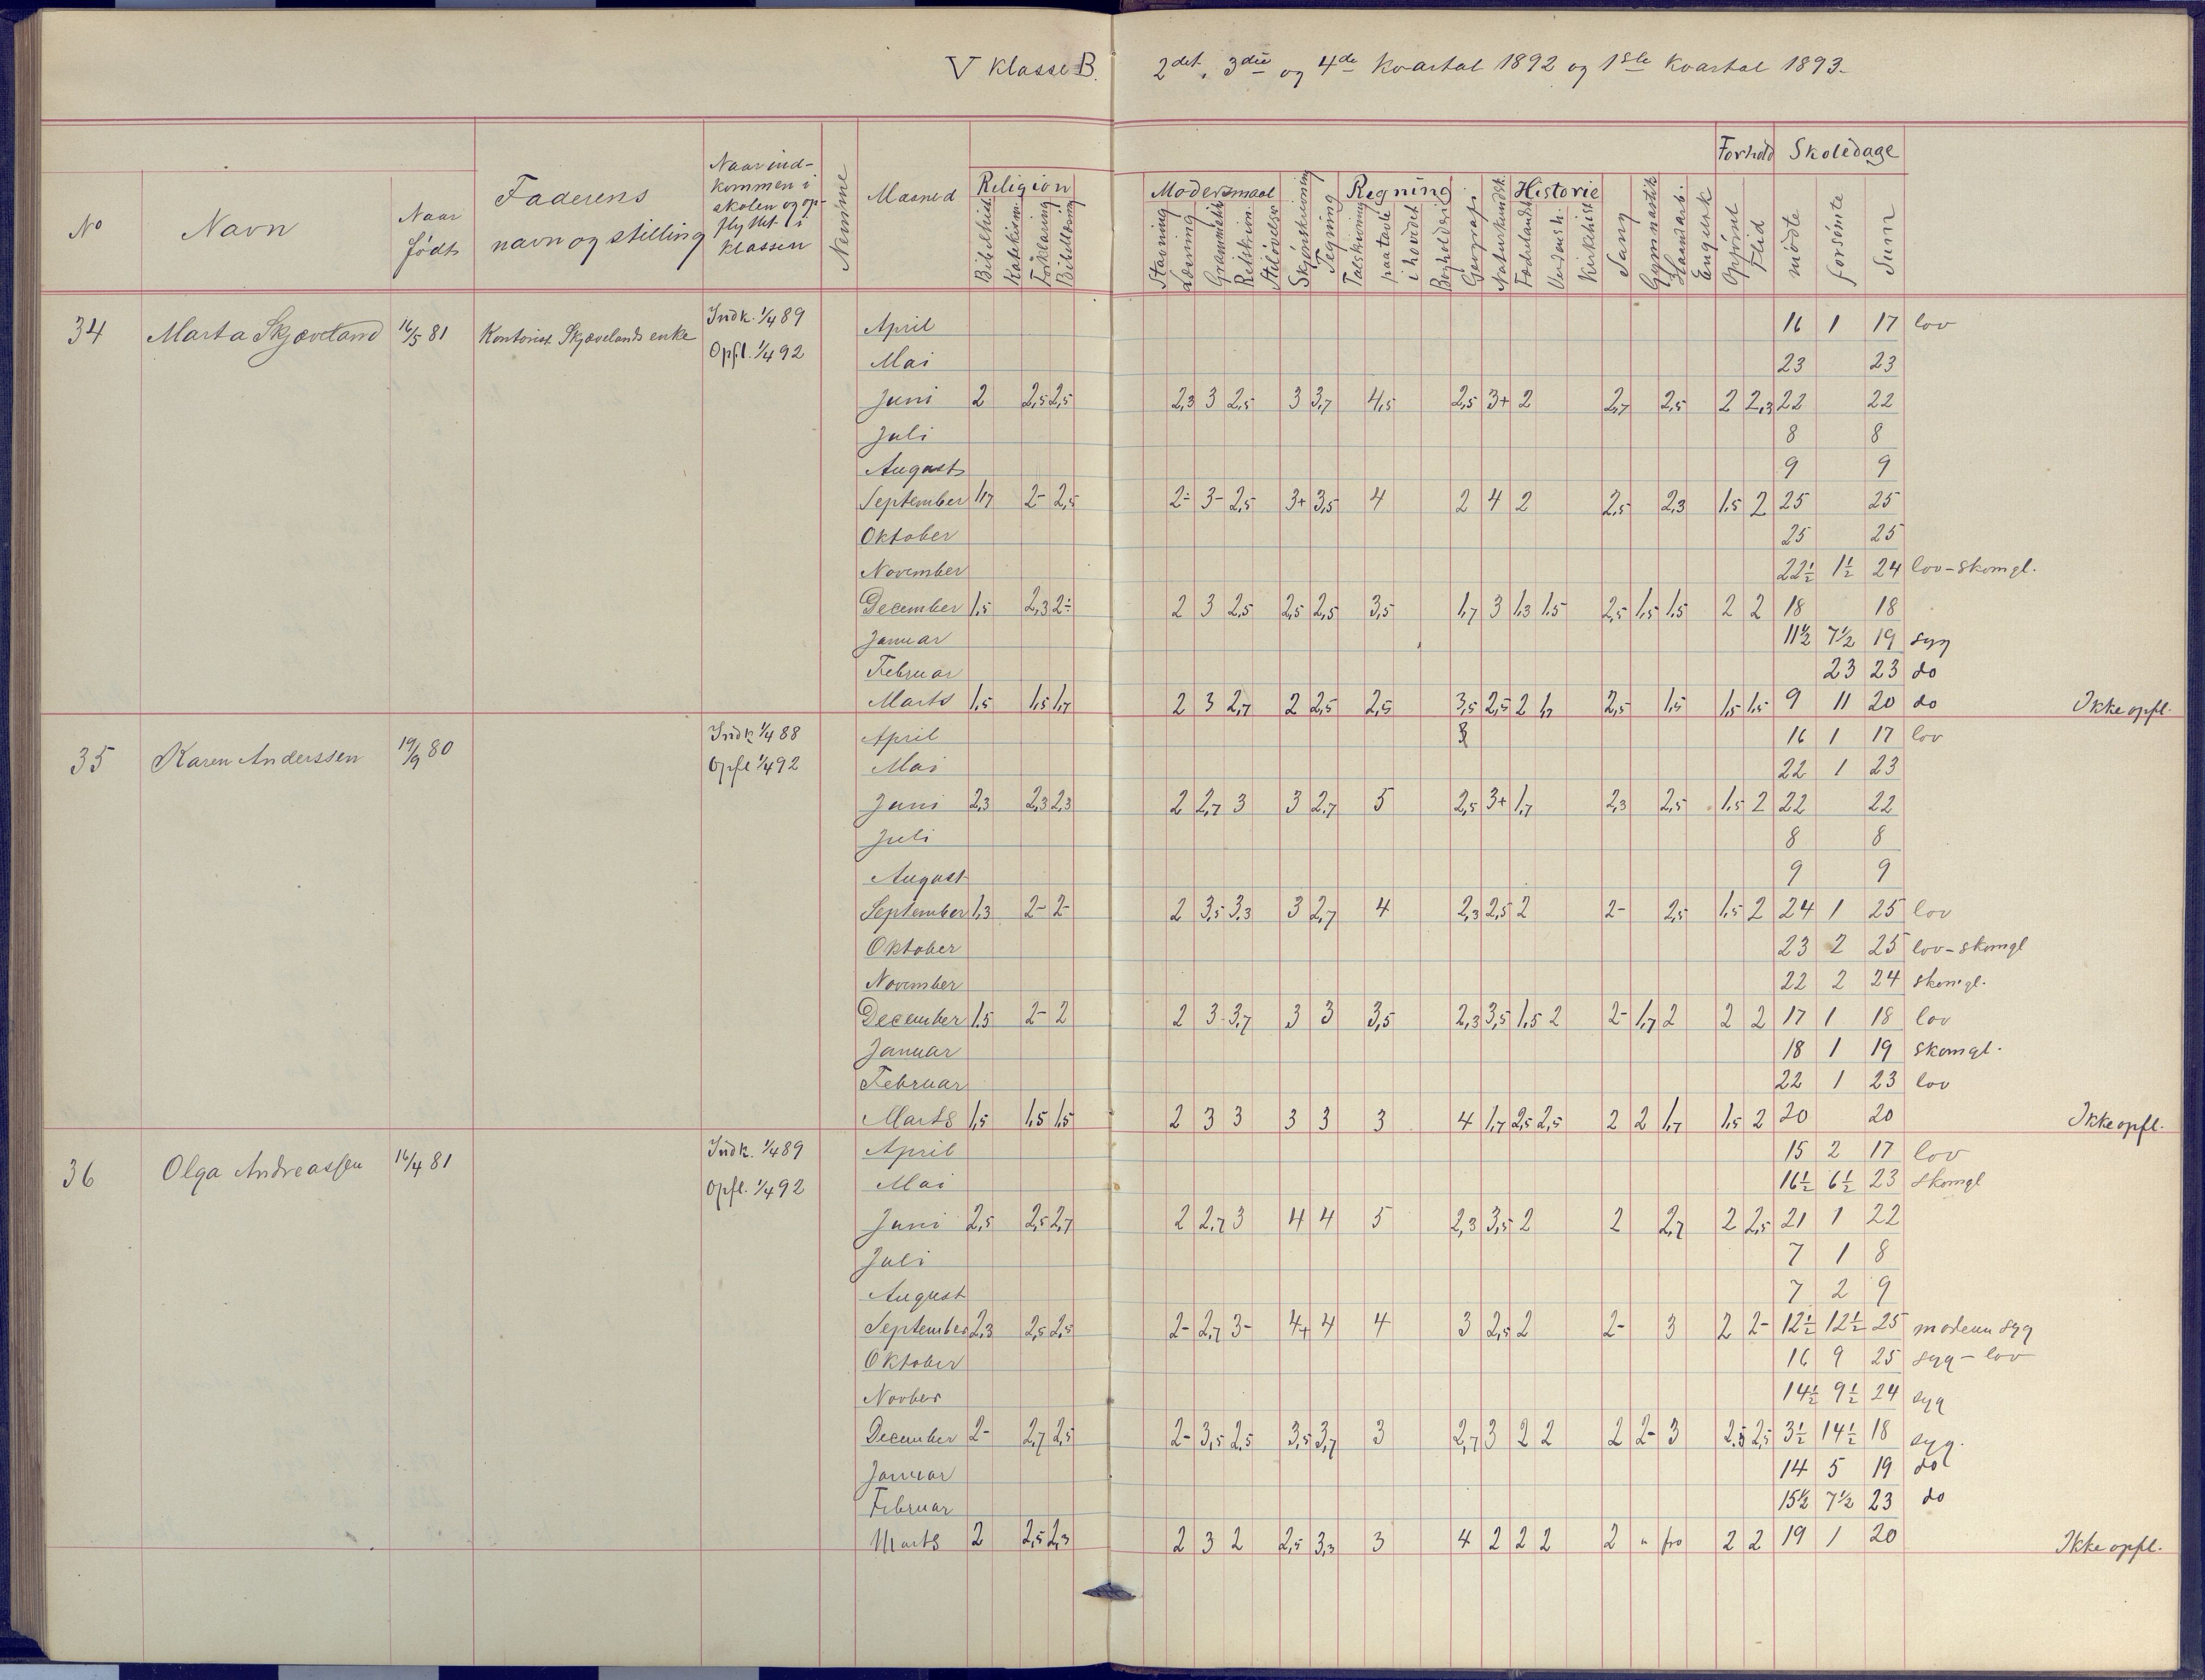 V Klasse B. 2det, 3die og 4de Kvartal 1892 og 1ste Kvartal 1893.
No Navn Naar født Faderens navn og stilling Naar ind-kommen i skolen og op-flyttet i klassen Nemme Maaned Religion Bibelhist. Katekism. Forklaring Bibellæsning Modersmaal Stavning Læsning Grammatik Retskriv. Stiløvelser Skjønskrivning Tegning Regning Talskrivning paa tavle i hovedet Bogholderi Geografi Naturkundsk. Historie Fædrelandsh. Verdensh. Kirkehist. Sang Gymnastik Haandarb. Engelsk Forhold Opførsel Flid Skoledage mødte forsømte Sum
34 Marta Skjæveland 16/5 81 Kontorist Skjævelands enke Indk. 1/4 89 April 16 1 17 lov
Opfl. 1/4 92 Mai 23 23
Juni 2 2,5 2,5 2,3 3 2,5 3 3,7 4,5 2,5 3+ 2 2,7 2,5 2 2,3 22 22
Juli 8 8
August 9 9
September 1,7 2- 2,5 2- 3- 2,5 3+ 3,5 4 2 4 2 2,5 2,3 1,5 2 25 25
Oktober 25 25
November 22½ 1½ 24 lov-skomgl.
December 1,5 2,3 2- 2 3 2,5 2,5 2,5 3,5 1,7 3 1,3 1,5 2,5 1,5 1,5 2 2 18 18
Januar 11½ 7½ 19 syg
Februar 23 23 do
Marts 1,5 1,5 1,7 2 3 2,7 2 2,5 2,5 3,5 2,5 2 1,7 2,5 1,5 1,5 1,5 9 11 20 do Ikke opfl.
35 Karen Anderssen 19/9 80 Indk 1/4 88 April 16 1 17 lov
Opfl 1/4 92 Mai 22 1 23
Juni 2,3 2,3 2,3 2 2,7 3 3 2,7 5 2,5 3+ 1,7 2,3 2,5 1,5 2 22 22
Juli 8 8
August 9 9
September 1,3 2- 2- 2 3,5 3,3 3 2,7 4 2,3 2,5 2 2- 2,5 1,5 2 24 1 25 lov
Oktober 23 2 25 lov-skomgl
November 22 2 24 skomgl.
December 1,5 2- 2 2 3- 3,7 3 3 3,5 2,3 3,5 1,5 2 2- 1,7 2 2 2 17 1 18 lov
Januar 18 1 19 skomgl.
Februar 22 1 23 lov
Marts 1,5 1,5 1,5 2 3 3 3 3 3 4 1,7 2,5 2,5 2 2 1,7 1,5 2 20 20 Ikke opfl.
36 Olga Andreassen 16/4 81 Indk. 1/4 89 April 15 2 17 lov
Opfl. 1/4 92 Mai 16½ 6½ 23 skomgl
Juni 2,5 2,5 2,7 2 2,7 3 4 4 5 2,3 3,5 2 2 2,7 2 2,5 21 1 22
Juli 7 1 8
August 7 2 9
September 2,3 2,5 2,5 2- 2,7 3- 4+ 4 4 3 2,5 2 2- 3 2 2- 12½ 12½ 25 moderen syg
Oktober 16 9 25 syg-lov
Novber 14½ 9½ 24 syg
December 2- 2,7 2,5 2- 3,5 2,5 3,5 3,7 3 2,7 3 2 2 2 2- 3 2,5 2,5 3½ 14½ 18 syg.
Januar 14 5 19 do
Februar 15½ 7½ 23 do
Marts 2 2,5 2,3 2 3 2 2,5 3,3 3 4 2 2 2 2 " fro 2 2 19 1 20 Ikke opfl.